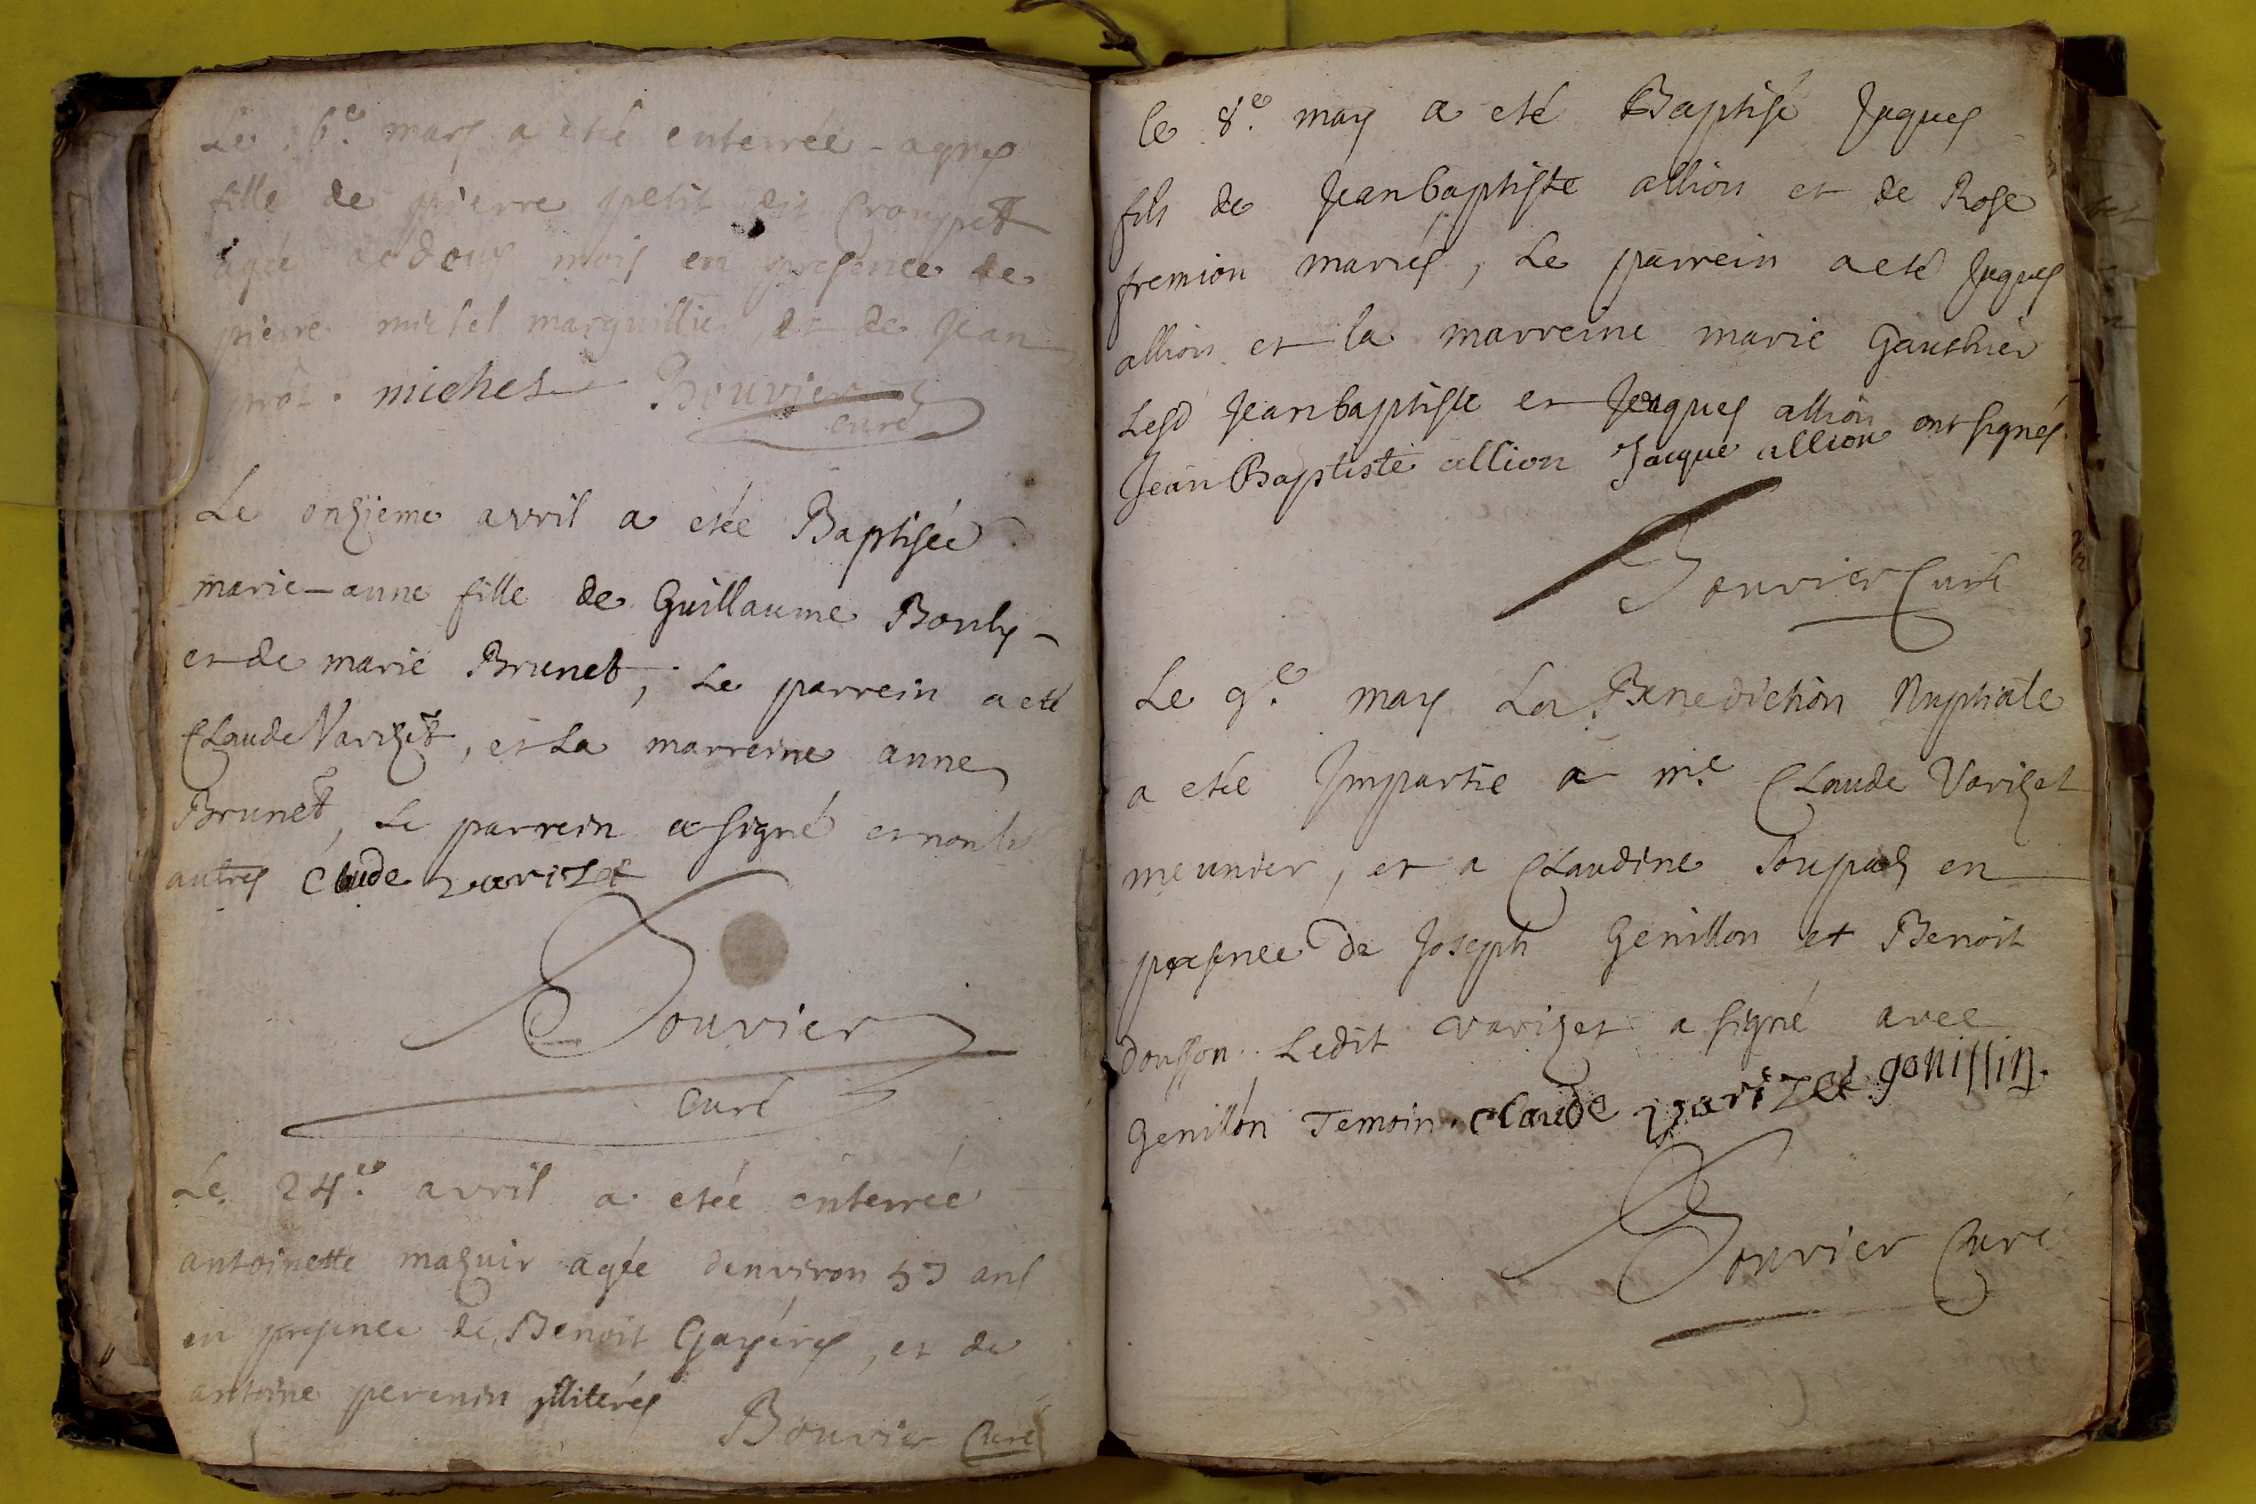 Le 6e. mars a eté enterrée - agnes
fille de pierre petit dit
agée de deux mois en presence de
pierre michel marguillier et de Jean
prôt. michel Bouvier
curé
Le onzieme avril a etée Baptisée
marie-anne fille de Guillaume Bouly
et de marie Brunet, Le parrein a eté
Claude Varizet, et La marreine anne
Brunet, Le parrein a signé et non les
autres Claude varizet
Bouvier
curé
Le 24e. avril a etée enterrée
antoinette mazuir agée denviron 53 ans
en presence de Benoit et de
antoine perenin illiterés
Bouvier Curé
le 8e. may a eté Baptisé Jaques
fils de Jeanbaptiste allion et de Rose
fremion mariés, Le parrein a eté Jaques
allion et la marreine marie Gauthier
Lesd Jeanbaptiste et Jeaques allion ont signés.
Jean Baptiste allion Jacque allion
Bouvier Curé
Le 9e. may La Benediction Nuptiale
a etée Impartie a me. Claude Varizet
meunier, et a Claudine en
presence de Joseph Genillon et Benoit
dousson. Ledit varizet a signé avec
Genillon Temoin. Claude varizet
Bouvier Curé